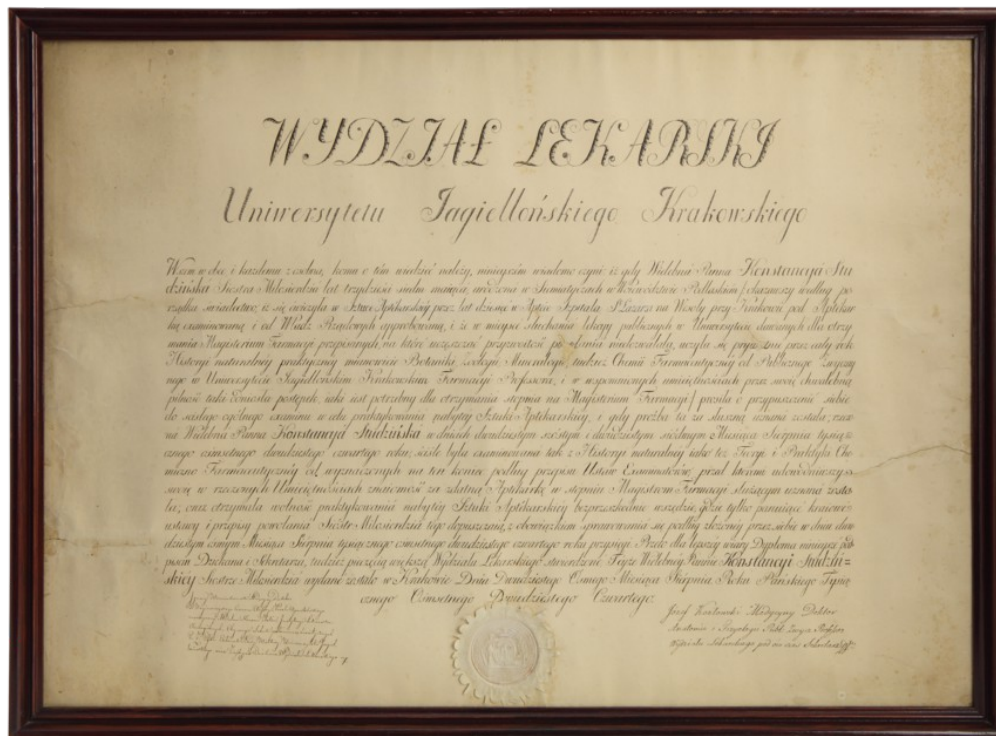 WYDZIAŁ LEKARSKI
Uniwersytetu Jagiellońskiego Krakowskiego
Wszem w obec i każdemu z osobna, komu o tém wiedzieć należy, niniejszém wiadomo czyni: iż gdy Wielebna Panna Konstancyja Stu
dzińska Siostra Miłosierdzia lat trzydzieści siedm mająca, urodzona w Siematyczach w Województwie Podlaskiém / okazawszy według po
rządku świadectwo, iż się ćwiczyła w Sztuce Aptékarskiéj przez lat dziesięć w Aptéce Szpitala Sgo Łazarza na Wesoły przy Krakowie pod Aptékar
ką examinowaną i od Władz Rządowych approbowaną, i że w miejsce słuchania lekcyj publicznych w Uniwersytecie dawanych dla otrzy
mania Magisterium Farmacyi przepisanych, na które uczęszczać przyzwoitość powołania niedozwalała, uczyła się prywatnie przez cały rok
Historyi naturalnéj praktycznéj mianowicie Botaniki, Zoologii, Mineralogii, tudzież Chemii Farmaceutycznéj od Publicznego Zwyczaj
nego w Uniwersytecie Jagiellońskim Krakowskim Farmacyi Professora, i w wspomnionych umiejętnościach przez swoję chwalebną
pilność taki odniosła postępek, jaki jest potrzebny dla otrzymania stopnia na Magisterium Farmacyi / prosiła o przypuszczenie siebie
do ścisłego ogólnego examinu w celu praktykowania nabytéj Sztuki Aptékarskiéj, i gdy prośba ta za słuszną uznana została, rzeczo
na Wielebna Panna Konstancyja Studzińska w dniach dwudziestym szóstym i dwudziestym siódmym Miesiąca Sierpnia tysiącz
nego ośmsetnego dwudziestego czwartego roku, ściśle była examinowana tak z Historyi naturalnéj jako też Teoryi i Praktyki Che
miczno Farmaceutycznéj od wyznaczonych na ten koniec podług przepisu Ustaw Examinatorów, przed któremi udowodniwszy
swoję w rzeczonych Umiejętnościach znajomość za zdatną Aptékarkę w stopniu Magistrom Farmacyi służącym uznaną zosta
ła; oraz otrzymała wolność praktykowania nabytéj Sztuki Aptékarskiéj bezprzeszkodnie wszędzie, gdzie tylko panujące krajowe
ustawy i przepisy powołania Sióstr Miłosierdzia tego dopuszczają, z obowiązkiem sprawowania się podług złożonéj przez siebie w dniu dwu
dziestym ósmym Miesiąca Sierpnia tysiącznego ośmsetnego dwudziestego czwartego roku przysięgi. Przeto dla lepszéj wiary Dyploma niniejsze pod
pisem Dziekana i Sekretarza, tudzież pieczęcią większą Wydziału Lekarskiego stwierdzone Tejże Wielebnéj Pannie Konstancyi Studziń-
skiéy Siostrze Miłosierdzia wydane zostało w Krakowie Dnia Dwudziestego Osmego Miesiąca Sierpnia Roku Pańskiego Tysią
cznego Ośmsetnego Dwudziestego Czwartego.
Józef Kozłowski Medycyny Doktor
Anatomii i Fizyologii Publ. Zwycz. Professor
Wydziału Lekarskiego